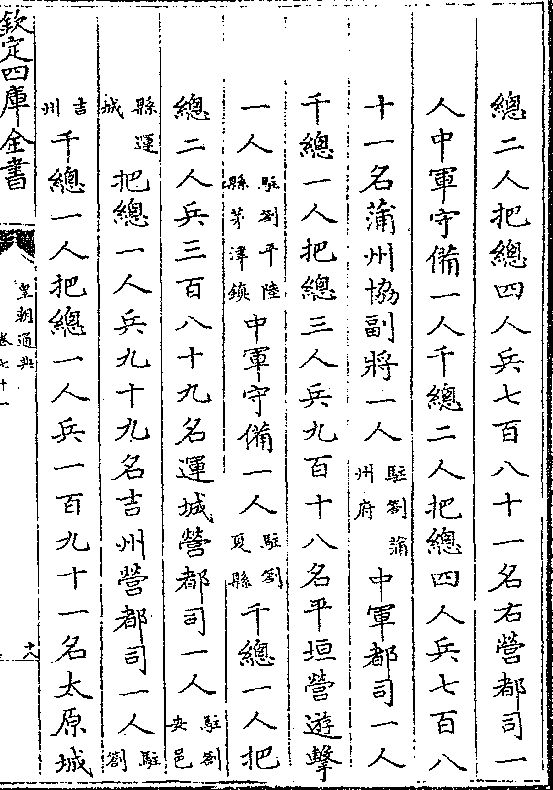 總二人把總四人兵七百八十一名右營都司一
人中軍守備一人千總二人把總四人兵七百八
十一名蒲州協副將一人駐劄蒲州府中軍都司一人
千總一人把總三人兵九百十八名平垣營遊擊
一人駐劄平陸縣茅津鎮中軍守備一人駐劄夏縣千總一人把
總二人兵三百八十九名運城營都司一人駐劄安邑
縣運城把總一人兵九十九名吉州營都司一人駐劄
吉州千總一人把總一人兵一百九十一名太原城
欽定四庫全書
皇朝通典
卷七十一
十八